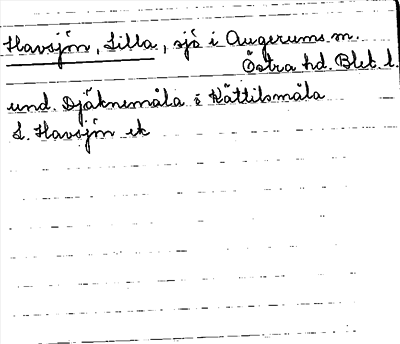 Havsjön, Lilla, sjö i Augerums m.
Östra hd. Blek. l.
und. Djäknemåla i Kättilsmåla
L. Havsjön ek